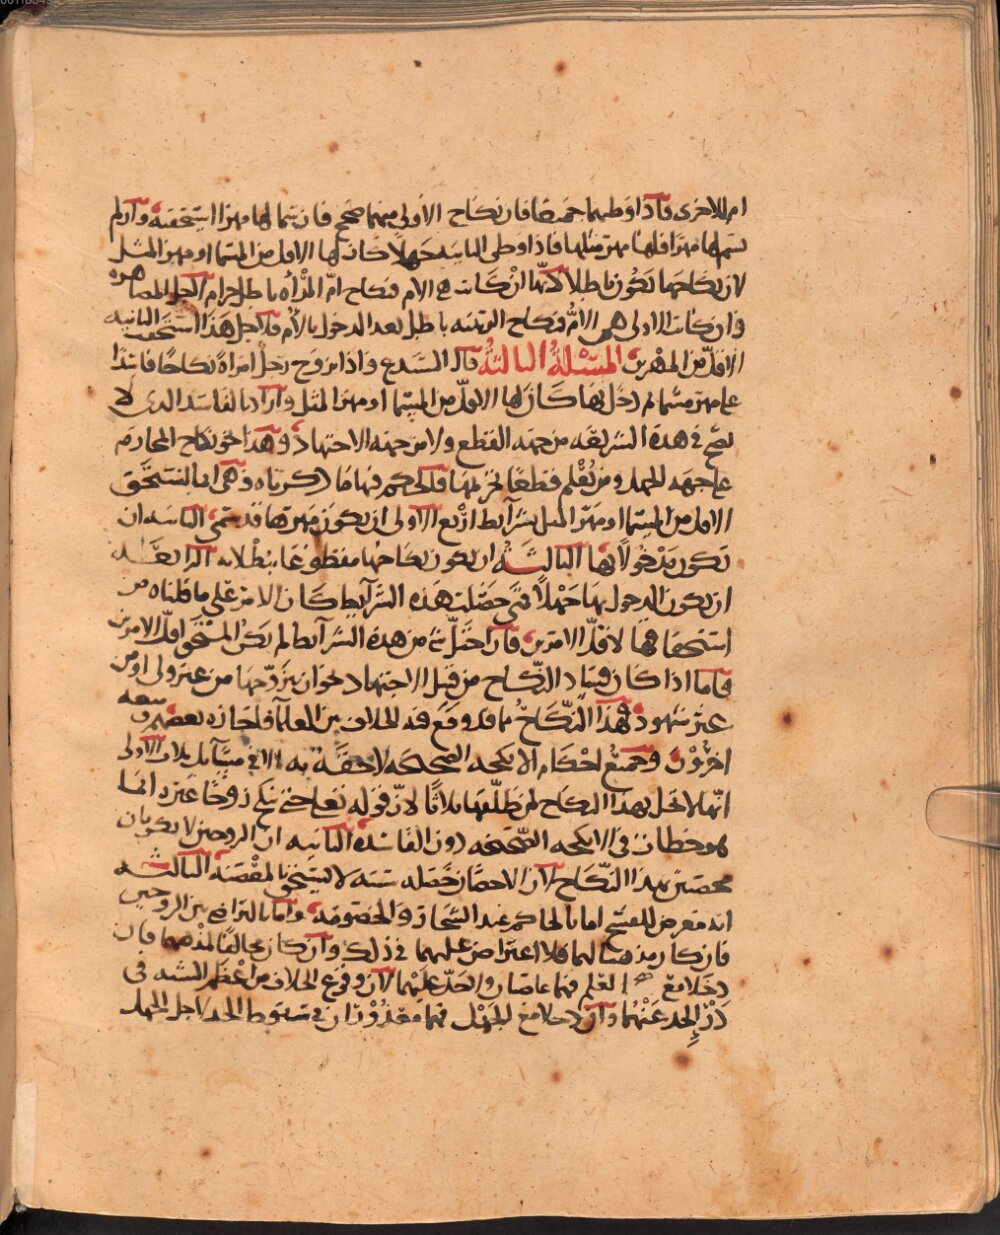 ام للاخرى فاذا وطيهما جميعا فان نكاح الاولى منهما صحيح فان سما لها مهرا استحقته وان لم
يسم لها مهرا فلها مهر مثلها فاذا وطى الثانيه جهلا كان لها الاقل من المسما او مهر المثل
لان نكاحها يكون باطلا لانها ان كانت هي الام فنكاح ام المرأه باطل حرام لاجل المصاهره
وان كانت الاولى هي الام فنكاح الربيبه باطل بعد الدخول بالام فلاجل هذا استحقت الثانيه
الاقل من المهرين المسئلة الثالثة قال السيد ع واذا تزوج رجل امراة نكاحا فاسدا
على مهر مسما ثم دخل بها كان لها الاقل من المسما او مهر المثل واراد بالفاسد الذي لا
يصح في هذه الشريعه من جهه القطع ولا من جهه الاجتهاد وهذا نحو نكاح المحارم
على جهه الجهل ومن يعلم قطعا تحريمها فالحكم فيها ما ذكرناه وهي انها تستحق
الاقل من المسما او مهر المثل بشرآيط اربع الاولى ان يكون مهرها قد سمي الثانيه ان
تكون مدخولا بها الثالثة ان يكون نكاحها مقطوعا ببطلانه الرابعة
ان يكون الدخول بها جهلا فمتى حصلت هذه الشرآيط كان الامر على ما قلناه من
استحقاقها لاقل الامرين فان اختل شي من هذه الشرآيط لم يكن المستحق اقل الامرين
فاما اذا كان فساد النكاح من قبل الاجتهاد نحو ان يتزوجها من غير ولي او من
غير شهود فهذا النكاح مما قد وقع فيه الخلاف بين العلمآ فاجازه بعضهم ومنعه
اخرون وجميع احكام الانكحه الصحيحه لاحقة به الا في مسآيل ثلاث الاولى
انها لا تحل بهذا النكاح لمن طلقها ثلاثا لان قوله تعالى حتى تنكح زوجا غيره انما
هو خطاب في الانكحه الصحيحه دون الفاسده الثانيه ان الزوجين لا يكونان
محصنين بهذا النكاح لان الاحصان خصله سنيه لا يستحق بالمقصه الثالثه
انه معرض للفسخ اما بالحاكم عند الشجار والخصومه واما بالتراضي بين الزوجين
فان كان مذهبا لهما فلا اعتراض عليهما في ذلك وان كان مخالفا لمذهبهما فان
دخلا مع العلم فهما عاصيان ولا حد عليهما لان وقوع الخلاف من اعظم الشبه في
درء الحد عنهما وان دخلا مع الجهل فهما معذوران في سقوط الحد لاجل الجهل